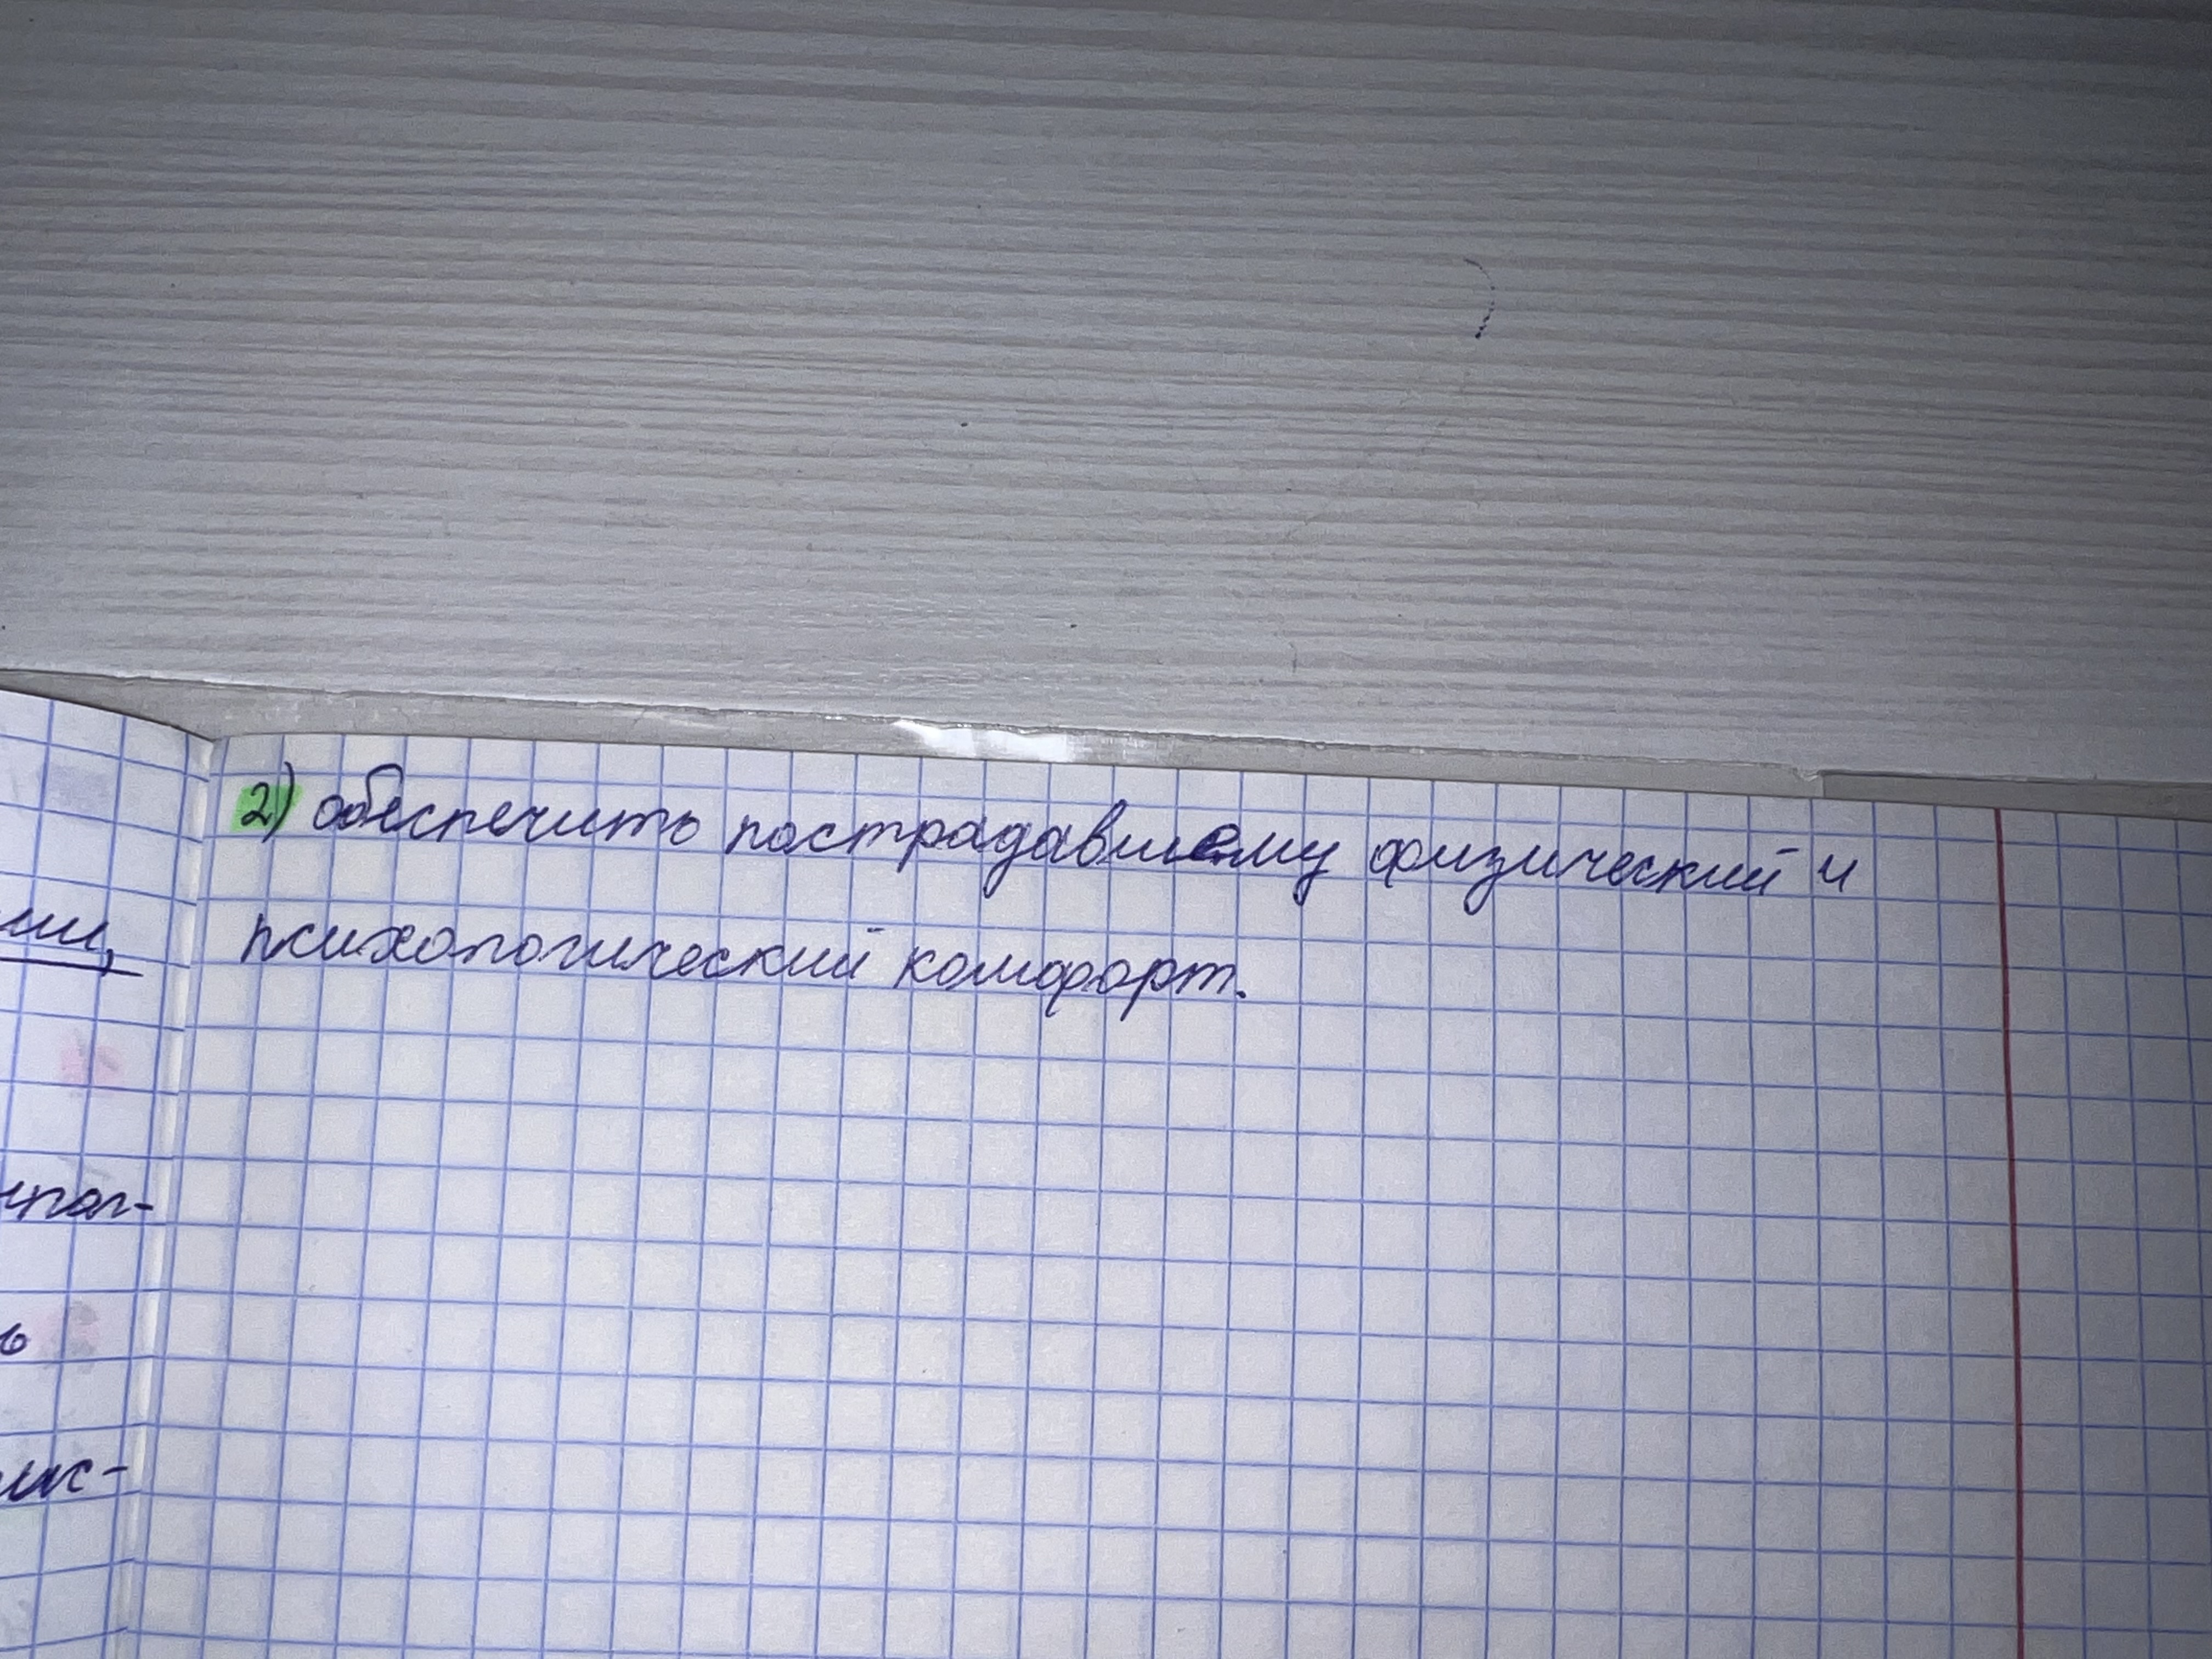 2) обеспечить пострадавшему физический и
психологический комфорт.